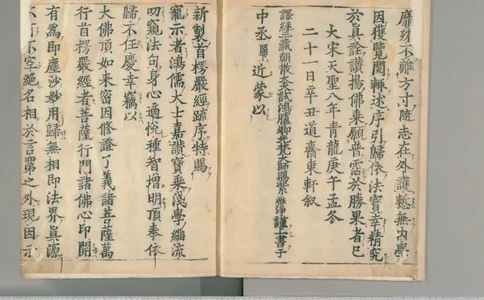 靡労不離方寸隨志在外護慙無內學
因獲覽閱輒述序引歸依法寶幸精究
於眞詮讚揚佛乘願普霑於勝果者已
大宋天聖八年青龍庚午孟冬
二十一日辛丑道齋東軒叙
譯經三藏朝散大夫試鴻臚卿光梵大師賜紫惟淨謹書子
中丞 近蒙以
新製首楞嚴經疏序特賜
寵示者鴻儒大士嘉讚寶乘淺學緇流
叨窺法句身心適悅種智增明頂奉依
歸不任慶幸竊以
大佛頂如來密因修證了義諸菩薩萬
行首楞嚴經者菩薩行門諸佛心印開
有爲即塵沙妙用歸無相即法界眞源
不有不空絕名相於言筌之外現因示